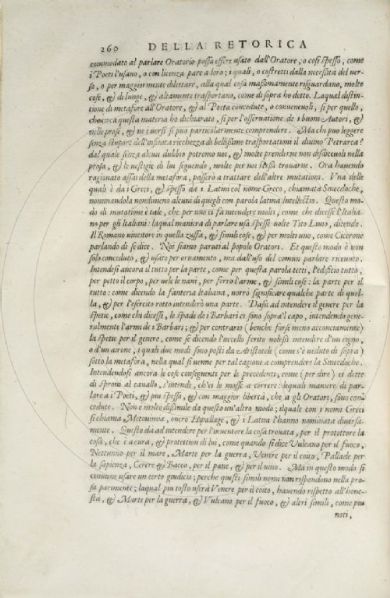 260 DELLA RETORICA
commodato al parlare Oratorio possa essere usato dall'Oratore, o così spesso, come
i Poeti l'usano, o con licenza pare a loro: i quali, o costretti dalla necessità del ver-
so, o per maggiormente dilettare, alla qual cosa massimamente riguardano, molte
cose, & di lunge, & altramente trasportano, come di sopra ho detto. Laqual distin-
tione di metafore all'Oratore, & al Poeta concedute, o convenevoli, si per quello,
che circa questa materia ho dichiarato, si per l'osservatione de i buoni Autori, &
nelle prose, & ne i versi si può particolarmente comprendere. Ma chi può leggere
senza stupore dell'infinita ricchezza di bellissimi trasportationi il divino Petrarca?
dal quale senza alcun dubbio potremo noi, & molte prenderne non disdicevoli nella
prosa, & le vestigie di lui seguendo, molte per noi stessi trovarne. Ora havendo
ragionato assai della metafora, passerò a trattare dell'altre mutationi. Una delle
quali è da i Greci, & spesso da i Latini col nome Greco, chiamata Sinecdoche,
nominandola nondimeno alcuni di quegli con parola latina Intellectio. Questo mo-
do di mutatione è tale, che per uno ci fa intendere molti, come chi dicesse l'Italia-
no per gli Italiani: laqual maniera di parlare usa spesse volte Tito Livio, dicendo.
Il Romano vincitore in quella zuffa, & simili cose, & per molti uno, come Cicerone
parlando di se dice. Noi siamo paruti al popolo Oratori. Et questo modo è non
solo conceduto, & usato per ornamento, ma dall'uso del comun parlare ricevuto.
Intendesi ancora il tutto per la parte, come per questa parola tetti, l'edificio tutto,
per petto il corpo, per vele le navi, per ferro l'arme, & simili cose: la parte per il
tutto: come dicendo la fanteria Italiana, vorrò significare qualche parte di quel-
la, & per l'esercito rotto intenderò una parte. Dassi ad intendere il genere per la
spetie, come chi dicesse, le spade de i Barbari ci sono sopra'l capo, intendendo gene-
ralmente l'armi de i Barbari; & per contrario (benche forse meno acconciamente)
la spetie per il genere, come se dicendo l'uccello ferito volessi intendere d'un cigno,
o d'un airone, i quali due modi sono posti da Aristotele (come s'è veduto di sopra)
sotto la metafora, nella qual si venne per tal cagione a comprendere la Sinecdoche.
Intendendosi ancora le cose conseguenti per le precedenti, come (per dire) ei dette
di sproni al cavallo, s'intende, ch'ei lo mosse a correre: lequali maniere di par-
lare a i Poeti, & più spesso, & con maggior libertà, che a gli Oratori, sono con-
cedute. Non è molto dissimile da questo un'altro modo; ilquale con i nomi Greci
si chiama Metonimia, overo Hipallage, & i Latini l'hanno nominata diversa-
mente. Questo dà ad intendere per l'inventore la cosa trovata, per il protettore la
cosa, che è a cura, & protettion di lui, come quando si dice Vulcano per il fuoco,
Nettunno per il mare, Marte per la guerra, Venere per il coito, Pallade per
la sapienza, Cerere & Bacco, per il pane, & per il vino. Ma in questo modo si
conviene usare un certo giudicio; perche questi simili nomi non rispondono nella pro-
sa parimente; laqual più tosto userà Venere per il coito, havendo rispetto all'hone-
stà, & Marte per la guerra, & Vulcano per il fuoco, & altri simili, come più
noti,